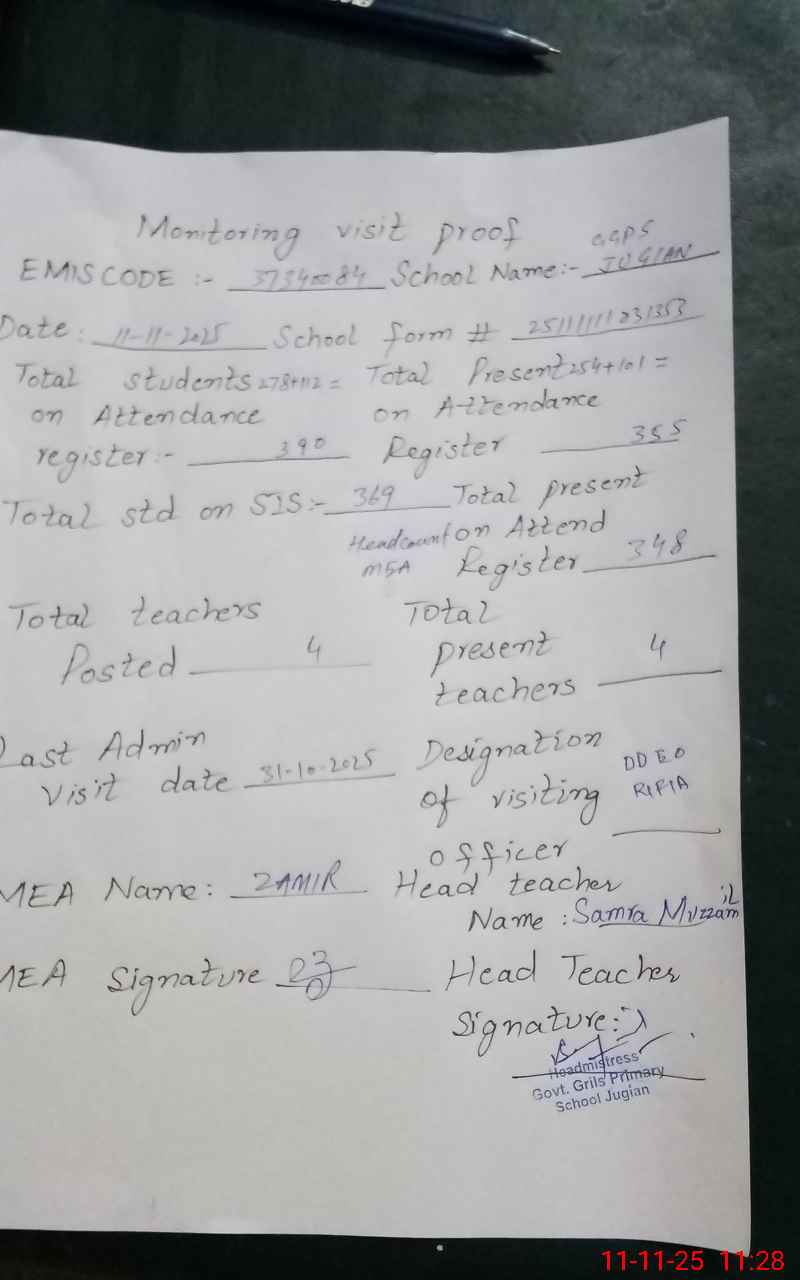 Monitoring visit proof
EMIS CODE :- 37340084 School Name:- GGPS JUGIAN
Date: 11-11-2025 School form # 25111111231353
Total students 278+112 = Total Present 254+101 =
on Attendance on Attendance
register:- 390 Register 355
Total std on SIS:- 369 Total present
Headcount on Attend
MEA Register 348
Total teachers Total
Posted 4 present 4
teachers
Last Admin Designation
Visit date 31-10-2025 of visiting DDEO
officer
MEA Name: ZAMIR Head teacher
Name : Samra Muzzamil
MEA Signature Head Teacher
Signature:
Headmistress
Govt. Grils Primary
School Jugian
11-11-25 11:28